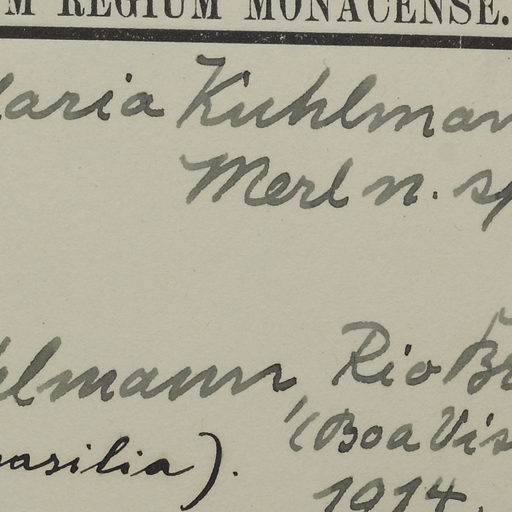 M REGIUM MONACENSE.
laria Kuhlman
Merl n. sp
hlmann, Rio Br
(Boa Vis
rasilia).
1914.